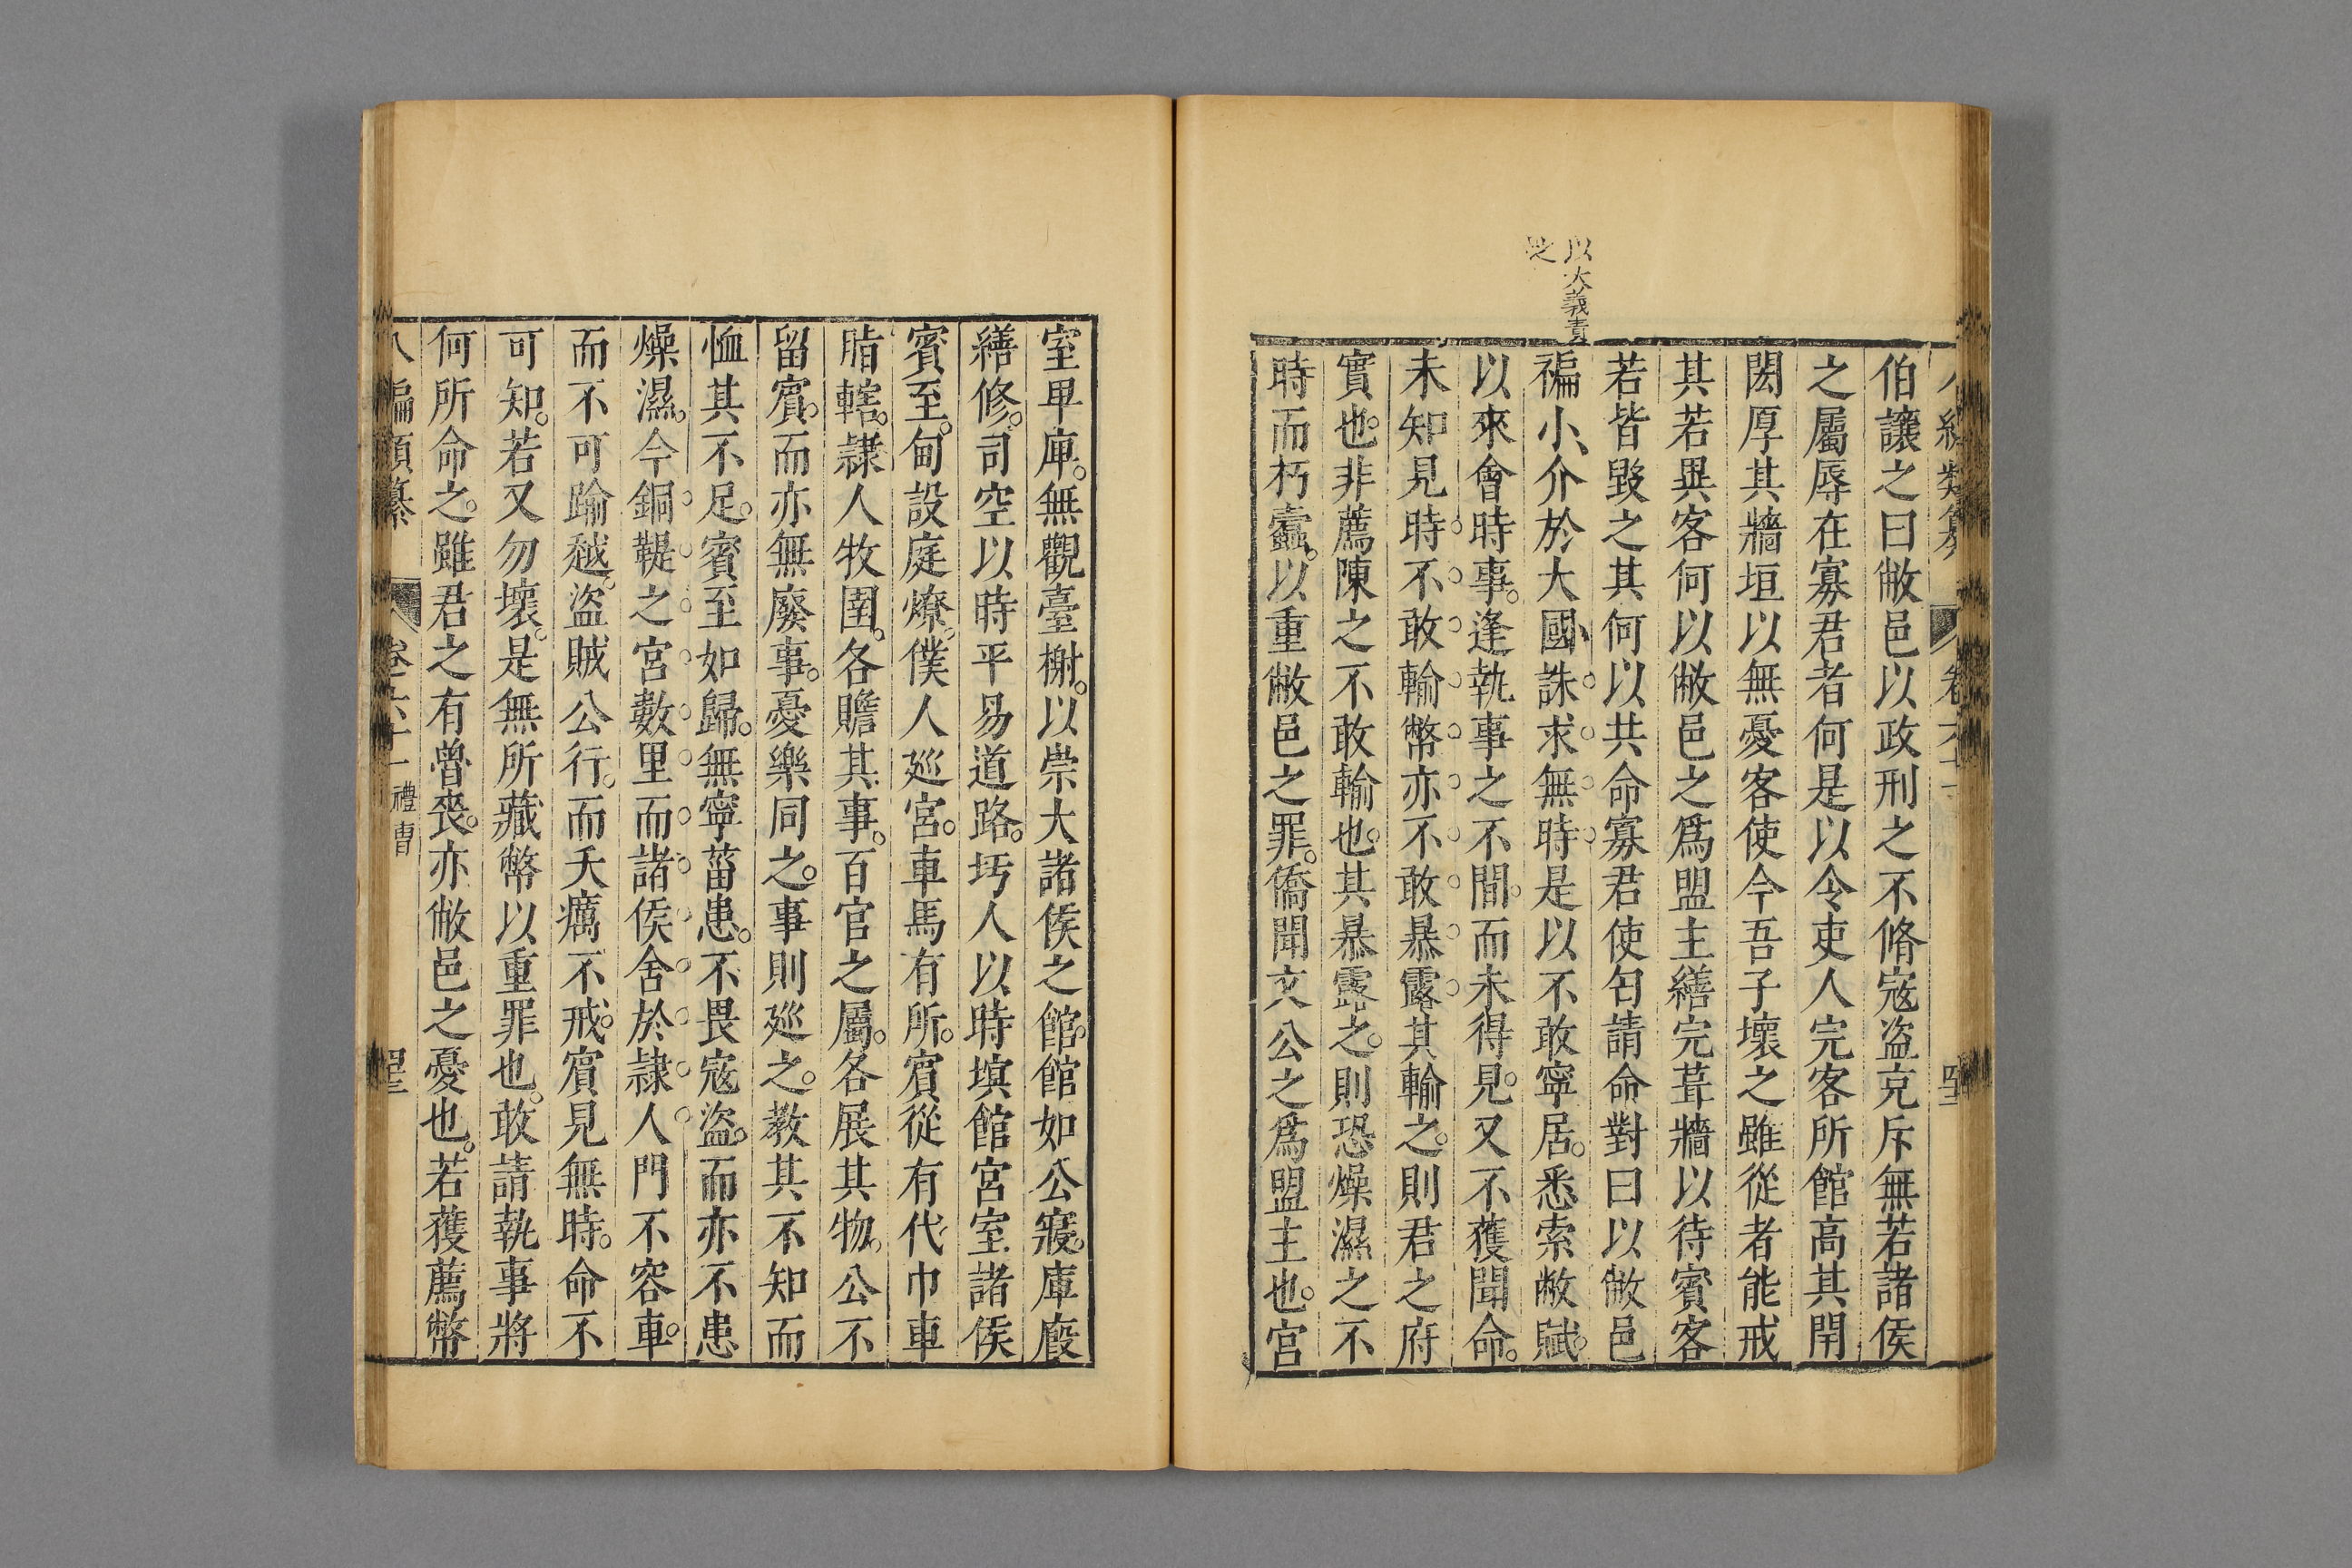 以大義責
之
伯讓之曰敝邑以政刑之不脩寇盜充斥無若諸侯
之屬辱在寡君者何是以令吏人完客所館高其閈
閎厚其牆垣以無憂客使今吾子壞之雖從者能戒
其若異客何以敝邑之爲盟主繕完葺牆以待賓客
若皆毀之其何以共命寡君使匄請命對曰以敝邑
褊小介於大國誅求無時是以不敢寧居。悉索敝賦。
以來會時事。逢執事之不閒。而未得見。又不獲聞命。
未知見時不敢輸幣亦不敢暴露其輸之。則君之府
實也。非薦陳之不敢輸也。其暴露之。則恐燥濕之不
時而朽蠹。以重敝邑之罪。僑聞文公之爲盟主也。宮
室卑庳。無觀臺榭。以崇大諸侯之館。館如公寢。庫廄
繕修。司空以時平易道路。圬人以時塓館宮室諸侯
賓至。甸設庭燎。僕人巡宮。車馬有所。賓從有代巾車
脂轄。隸人牧圉。各瞻其事。百官之屬。各展其物。公不
留賓。而亦無廢事。憂樂同之。事則巡之。教其不知而
恤其不足。賓至如歸。無寧菑患。不畏寇盜。而亦不患
燥濕。今銅鞮之宮數里而諸侯舍於隸人門不容車。
而不可踰越。盜賊公行。而夭癘不戒。賓見無時。命不
可知。若又勿壞。是無所藏幣以重罪也。敢請執事將
何所命之。雖君之有魯喪。亦敝邑之憂也。若獲薦幣
八編類纂 卷六十一 禮曹